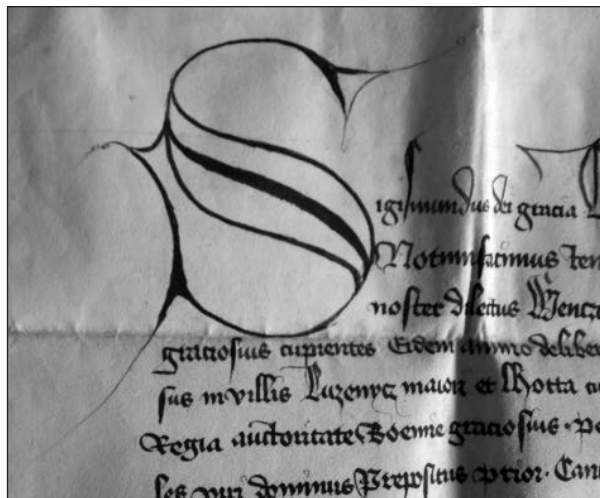 Sigismundus dei gracia
Notumfacimus
noster dilectus Wencz
graciosius cupientes Eidem animo
sus in villis Luzenycz maiori et Lhotta
Regia auctoritate Boemie graciosius
les viri dominus Prepositus prior Can